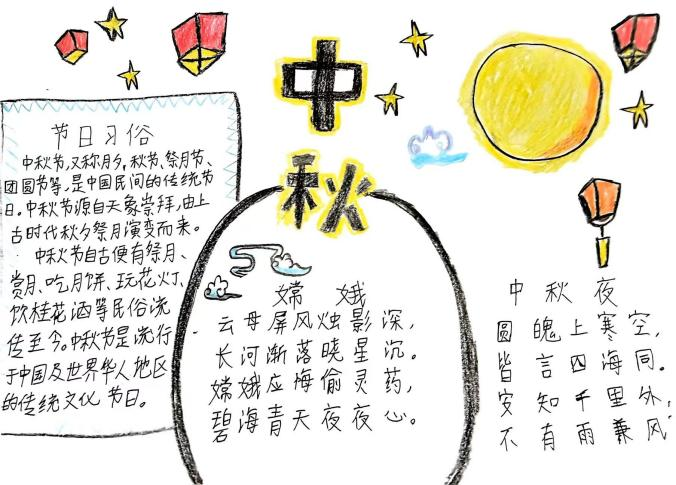 中
秋
节日习俗
中秋节,又称月夕、秋节、祭月节、
团圆节等,是中国民间的传统节
日。中秋节源自天象崇拜,由上
古时代秋夕祭月演变而来。
中秋节自古便有祭月、
赏月、吃月饼、玩花灯、
饮桂花酒等民俗流
传至今。中秋节是流行
于中国及世界华人地区
的传统文化节日。
嫦娥
云母屏风烛影深,
长河渐落晓星沉。
嫦娥应悔偷灵药,
碧海青天夜夜心。
中秋夜
圆魄上寒空,
皆言四海同。
安知千里外,
不有雨兼风